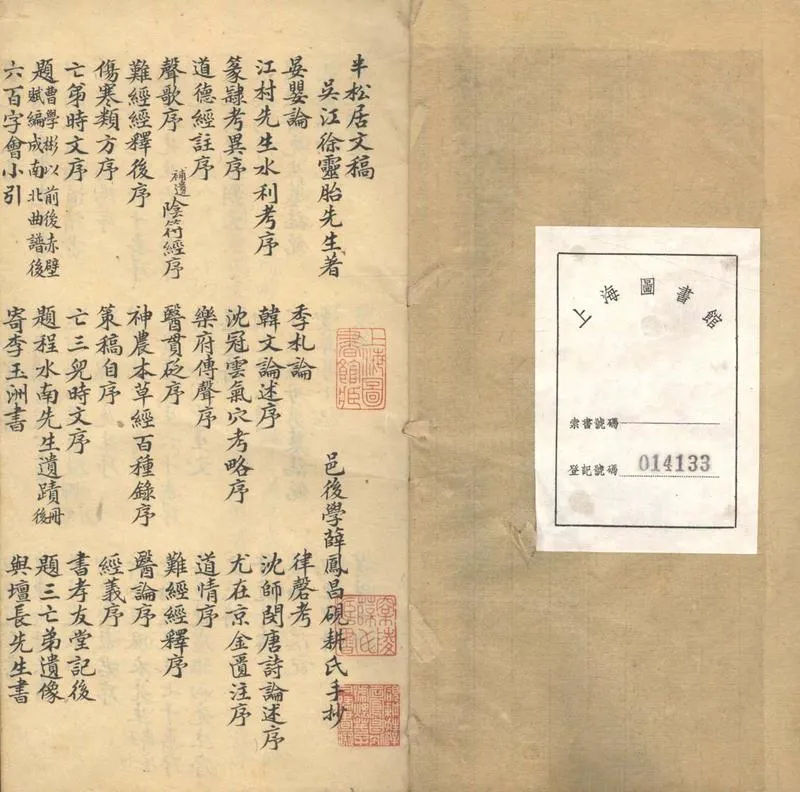 上海圖書館
索書號碼
登記號碼 014133
半松居文稿
吳江徐靈胎先生著 邑後學薛鳳昌硯耕氏手抄
晏嬰論 季札論 律磬考
江村先生水利考序 韓文論述序 沈師閔唐詩論述序
篆隸考異序 沈冠雲氣穴考略序 尤在京金匱注序
道德經註序 樂府傳聲序 道情序
聲歌序 補遺陰符經序 醫貫砭序 難經經釋序
難經經釋後序 神農本草經百種錄序 醫論序
傷寒類方序 策稿自序 經義序
亡弟時文序 亡三兒時文序 書孝友堂記後
題曹學彬以前後赤壁賦編成南北曲譜後 題程水南先生遺蹟冊後 題三亡弟遺像
六百字會小引 寄李玉洲書 與壇長先生書
上海圖書館藏